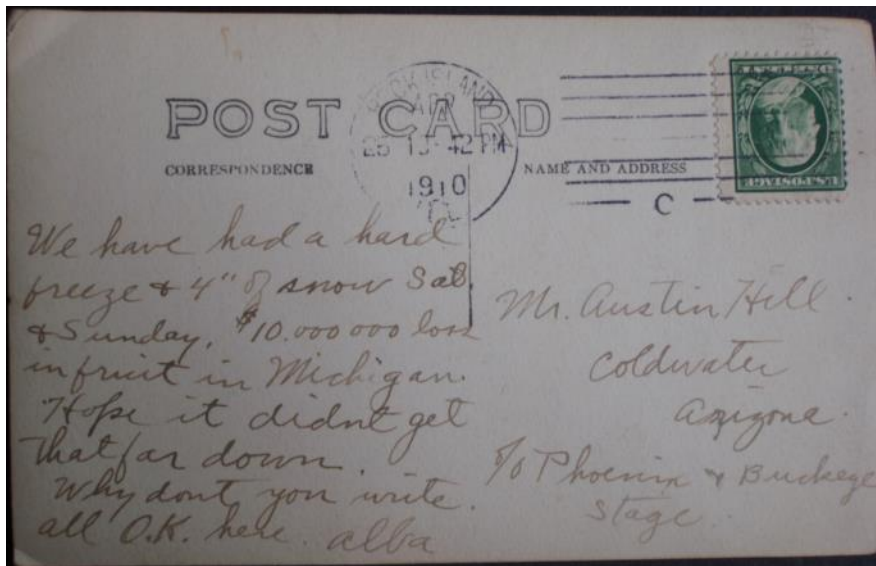 POST CARD
ROCK ISLAND
APR
25 12-42 PM
1910
ILL.
C
CORRESPONDENCE
NAME AND ADDRESS
U.S. POSTAGE
We have had a hard
freeze & 4" of snow Sat.
& Sunday, $10.000 000 loss
in fruit in Michigan.
Hope it didnt get
that far down.
Why dont you write.
all O.K. here. alba
Mr. Austin Hill.
Coldwater
Arizona.
c/o Phoenix & Buckeye
Stage.